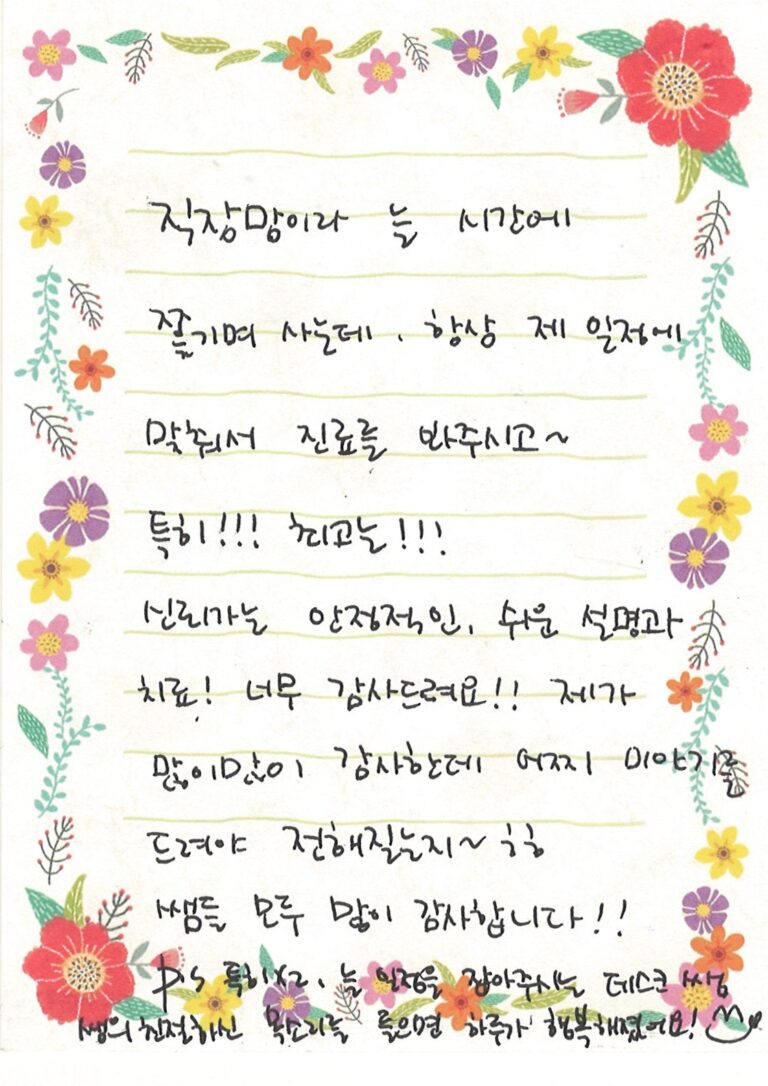 직장맘이라 늘 시간에
쫓기며 사는데, 항상 제 일정에
맞춰서 진료를 봐주시고~
특히!!! 최고는!!!
신뢰가는 안정적인, 쉬운 설명과
치료! 너무 감사드려요!! 제가
많이많이 감사한데 어찌 이야기를
드려야 전해질는지~ ㅎㅎ
쌤들 모두 많이 감사합니다!!
ps 늘 일정을 잡아주시는 데스크 쌤
쌤의 친절하신 목소리를 들으면 하루가 행복해졌어요!